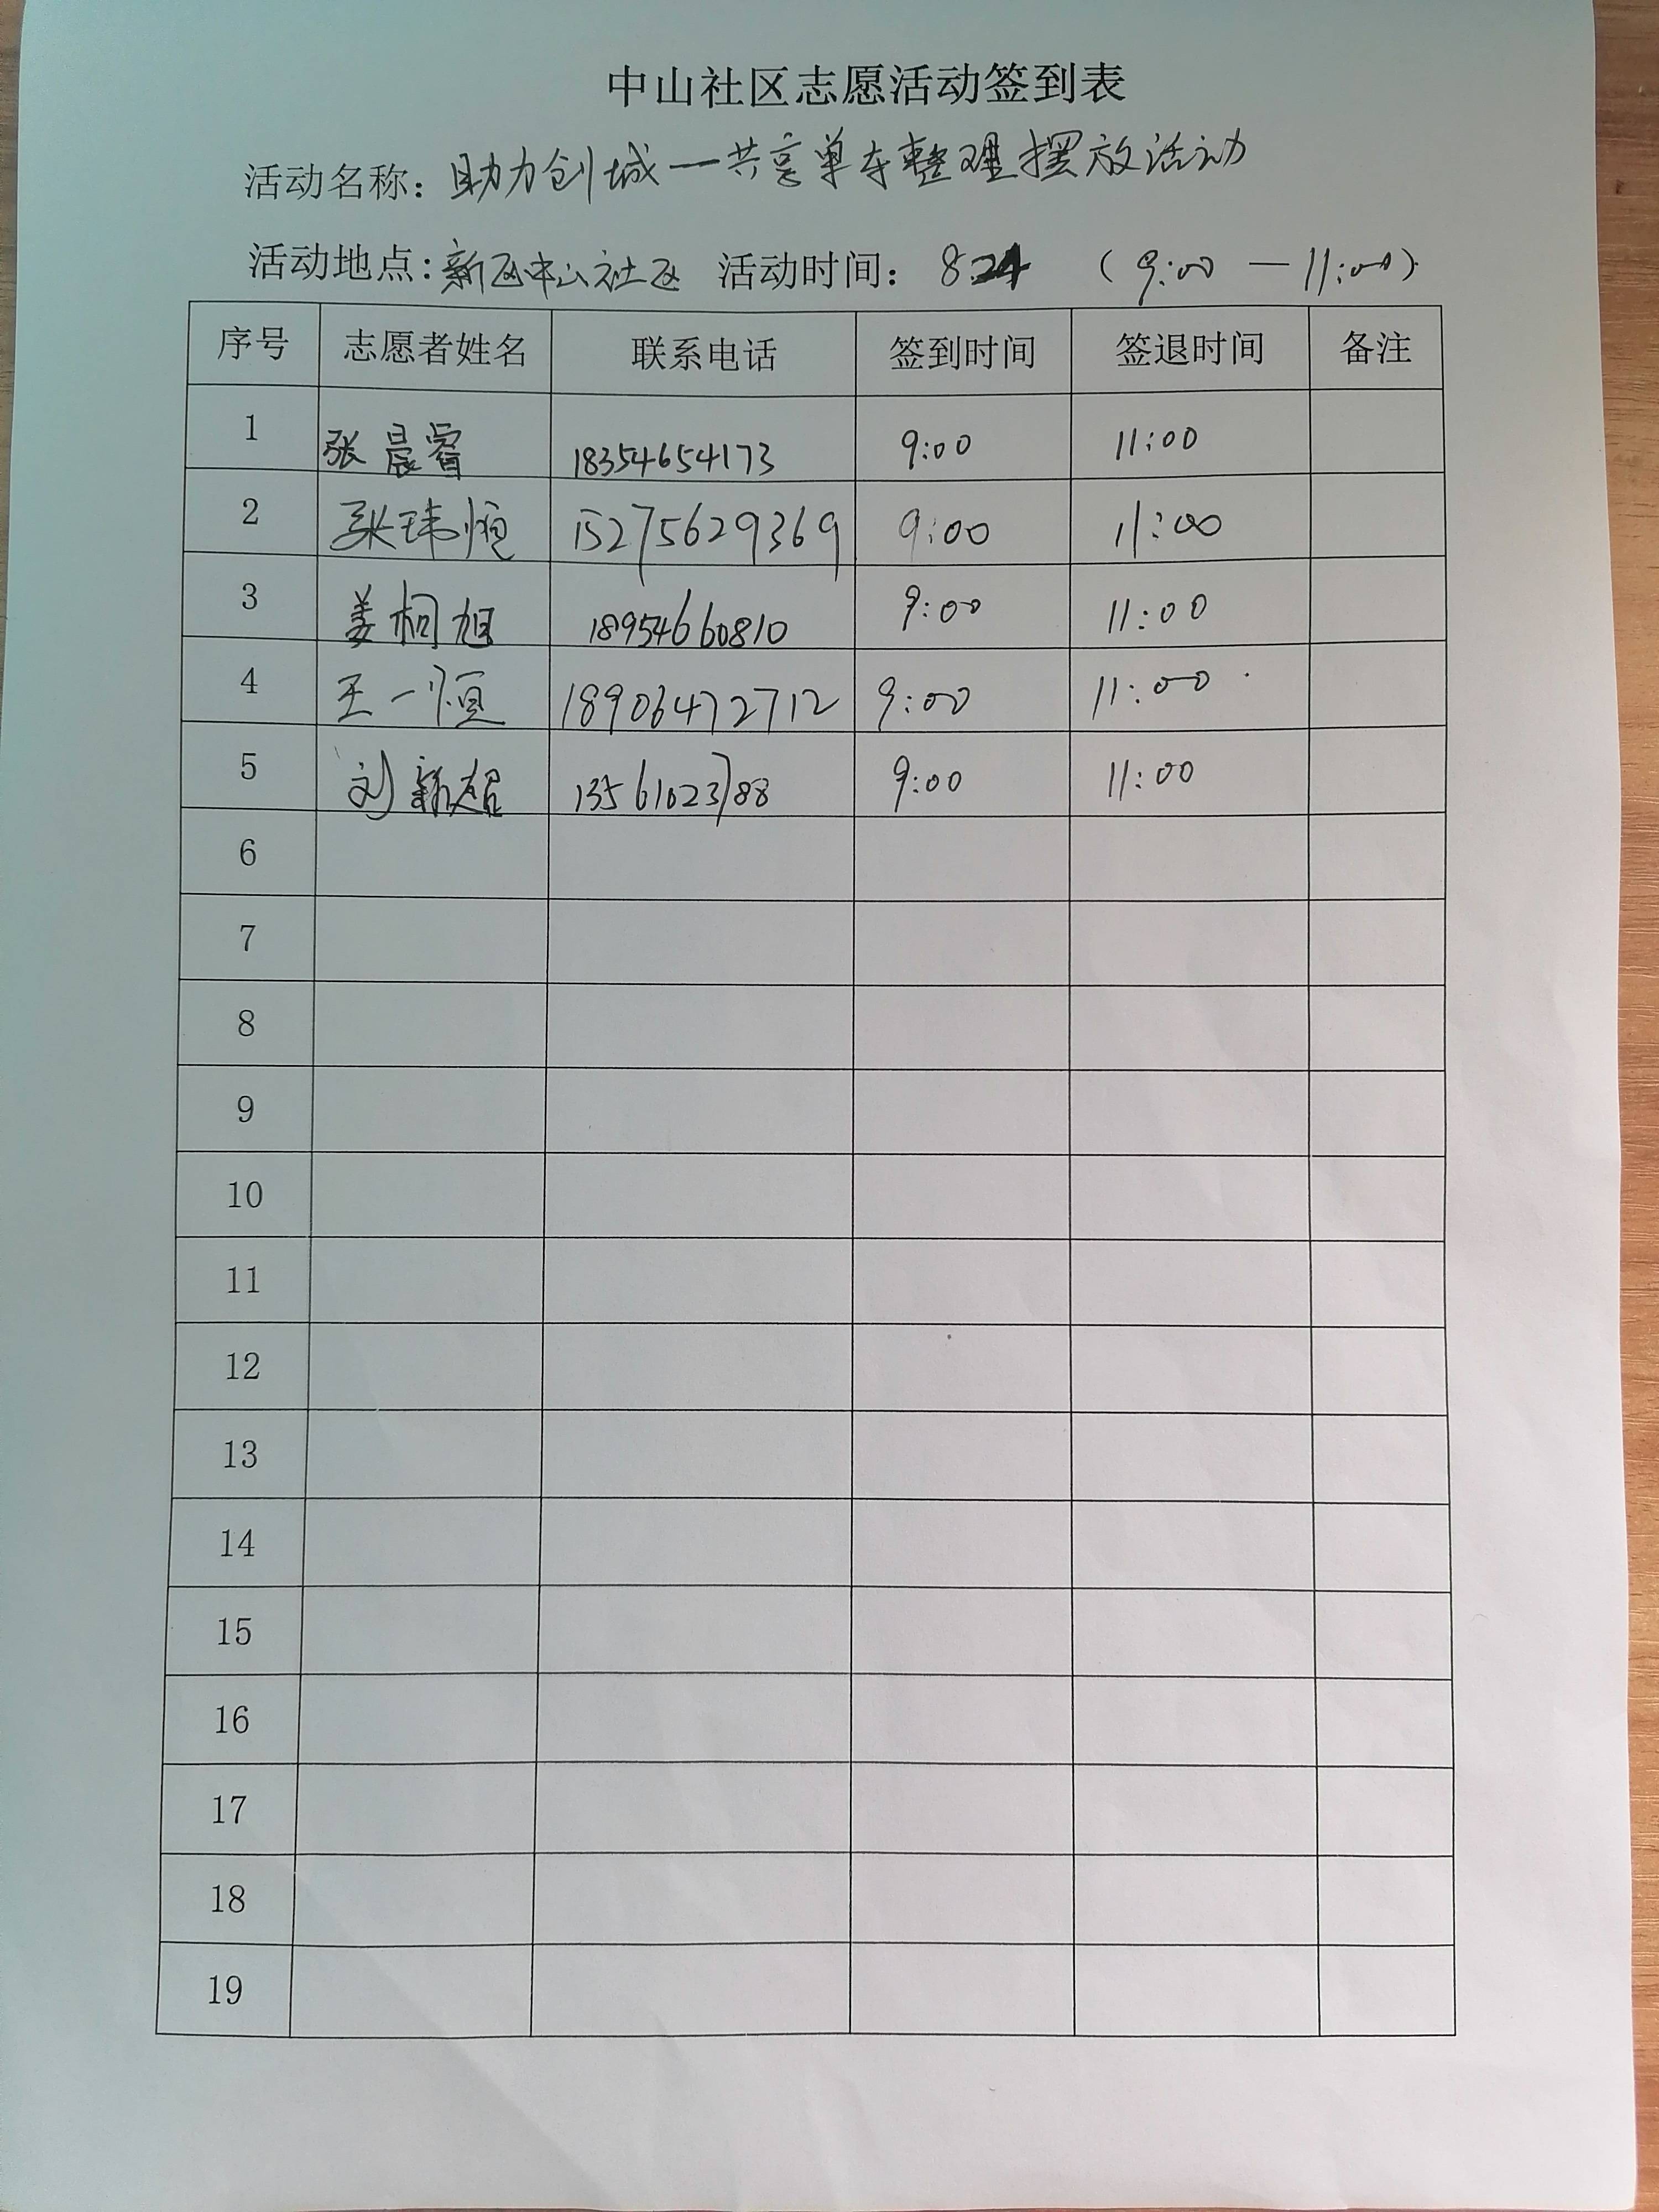 中山社区志愿活动签到表
活动名称：助力创城一共享单车整理摆放活动
活动地点：新区中山社区 活动时间：8.24 （9:00 — 11:00）
序号 志愿者姓名 联系电话 签到时间 签退时间 备注
1 张晨睿 18354654173 9:00 11:00
2 张玮恒 15275629369 9:00 11:00
3 姜桐旭 18954660810 9:00 11:00
4 王一恒 18906472712 9:00 11:00
5 刘新超 13561023788 9:00 11:00
6
7
8
9
10
11
12
13
14
15
16
17
18
19